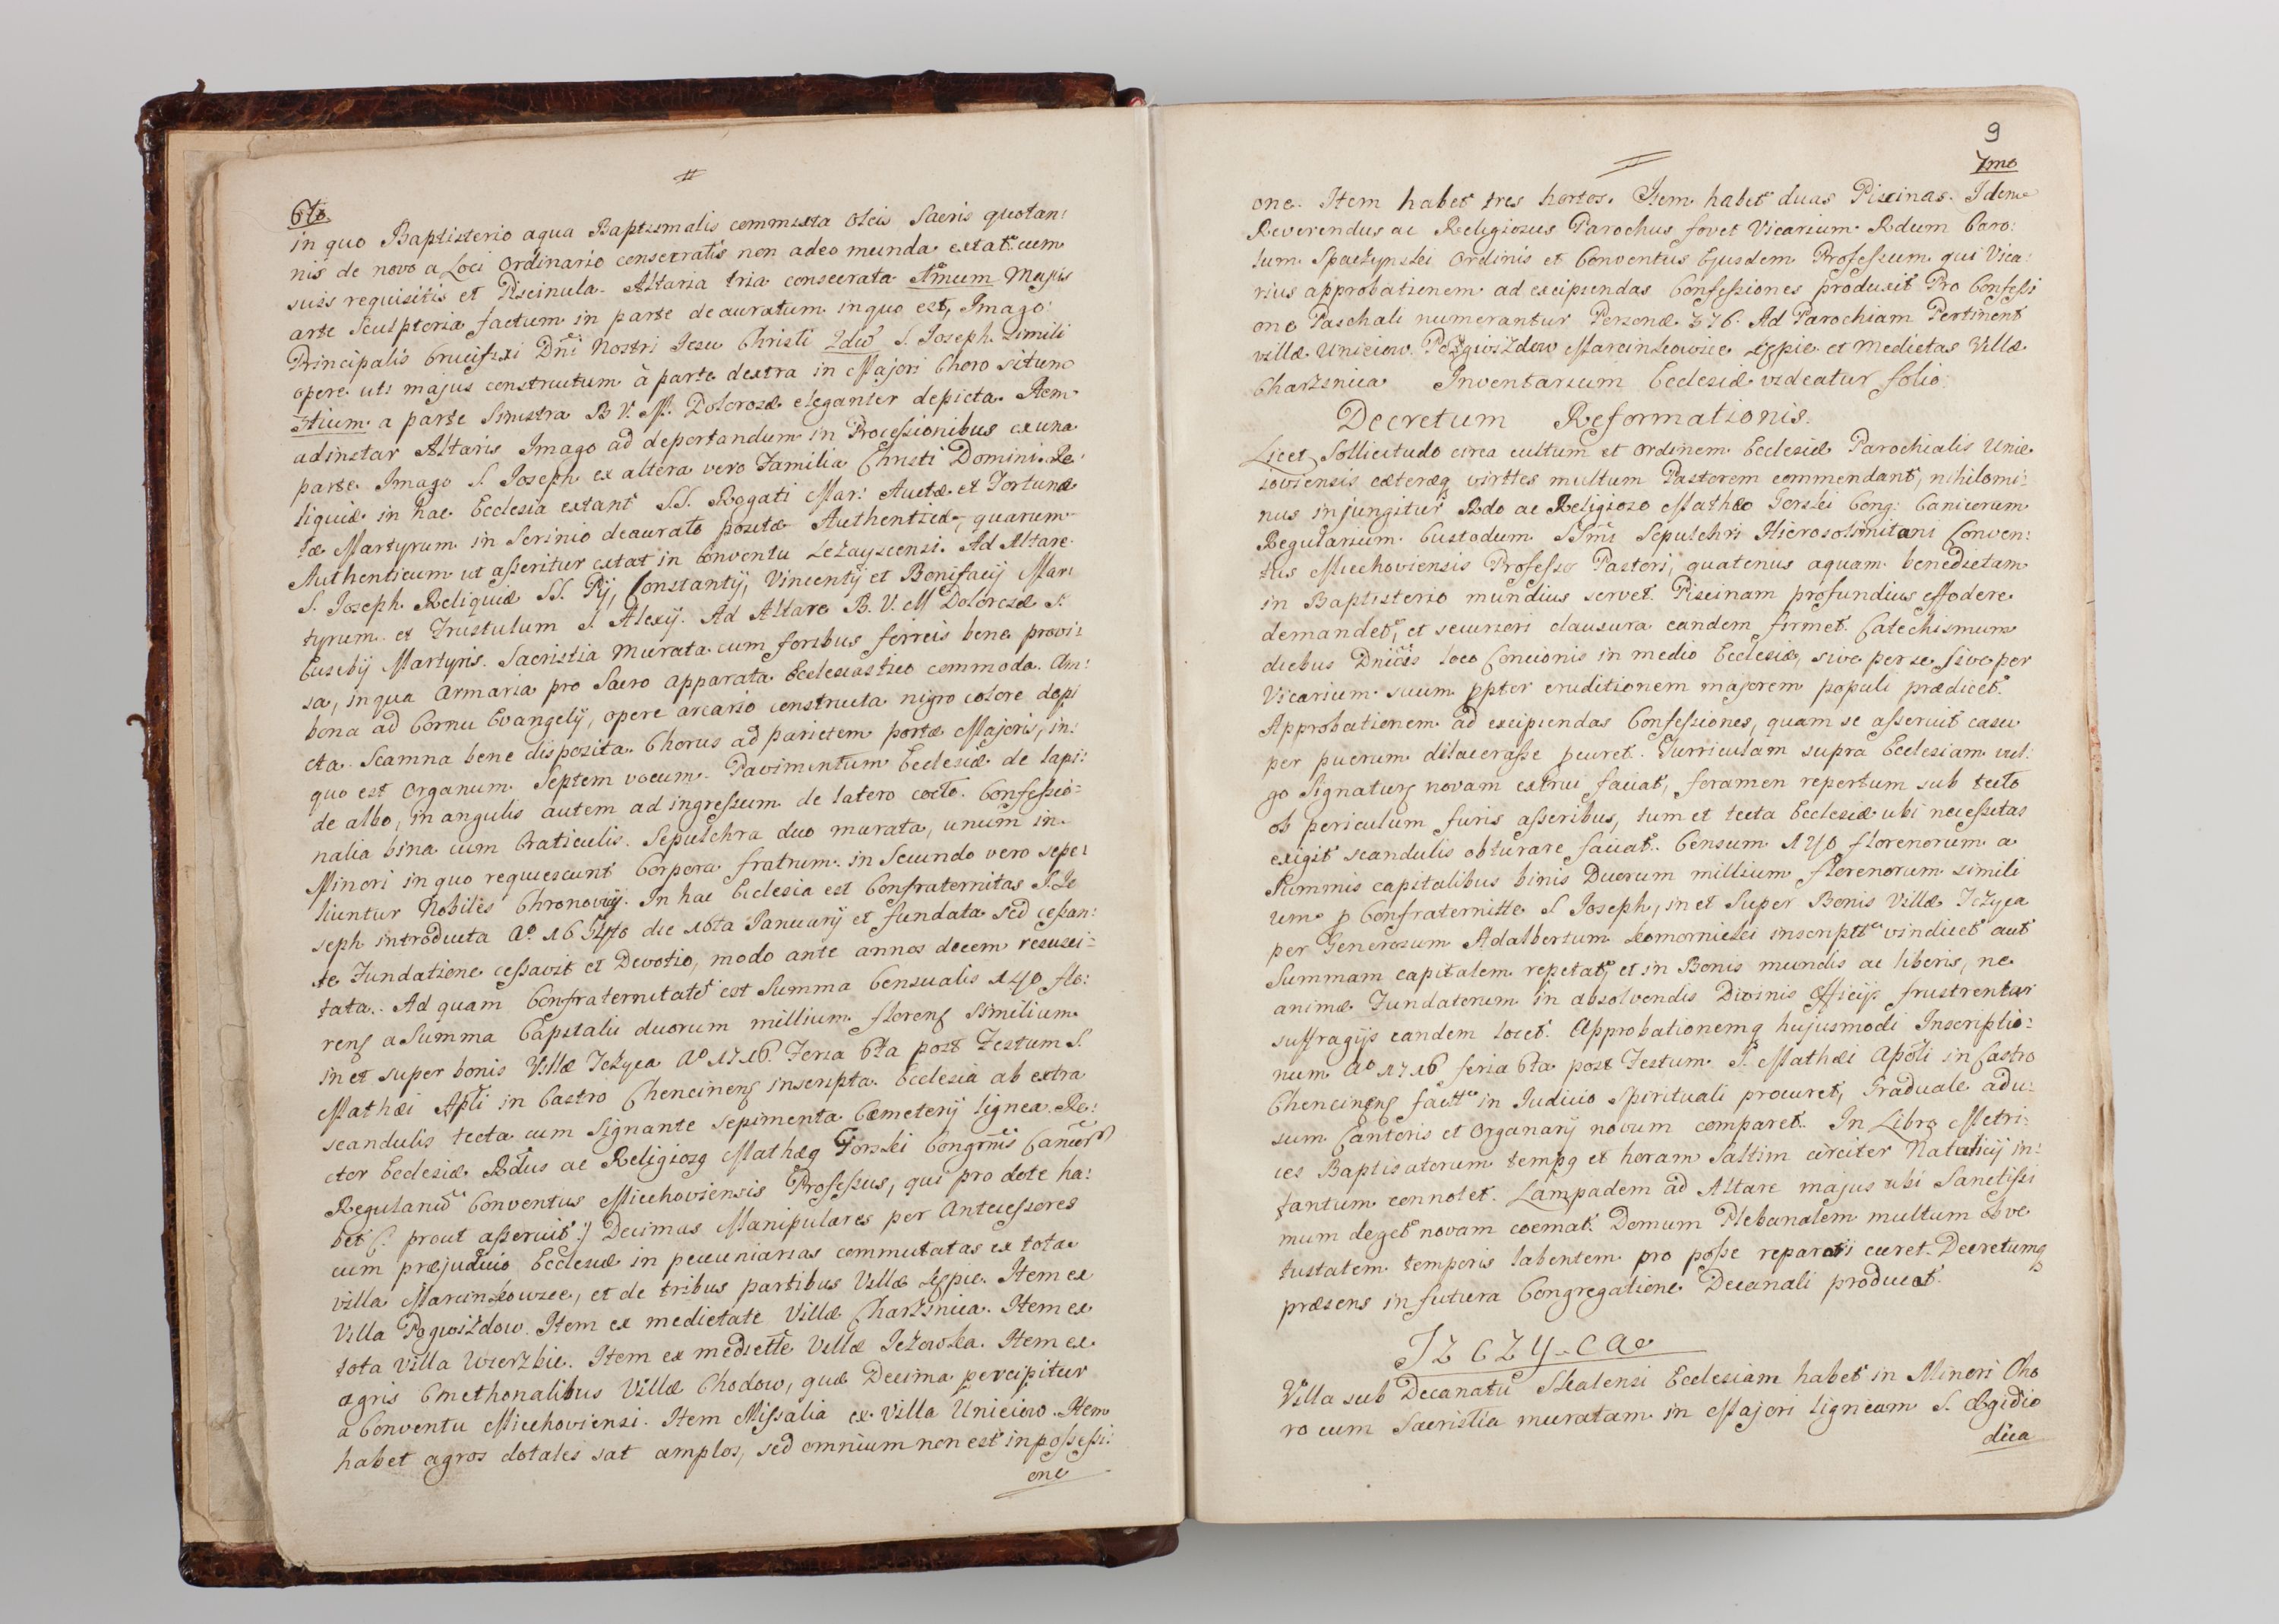 6to
in quo Baptisterio aqua Baptismalis commixta Oleis Sacris quotan:
nis de novo a Loci Ordinario consecratis non adeo munda extat cum
suis requisitis et Piscinula. Altaria tria consecrata 1mum Majus
arte Sculptoria factum in parte deauratum in quo est, Imago
Principalis Crucifixi Dñi Nostri Jesu Christi 2dũ S. Joseph simili
opere uti majus constructum à parte dextra in Majori Choro situm
3tium a parte Sinistra B. V. M. Dolorosæ eleganter depicta. Item
adinstar Altaris Imago ad deportandum in Processionibus ex una
parte Imago S. Joseph ex altera vero Familia Christi Domini. Re:
liquiæ in hac Ecclesia extant SS. Rogati Mar: Auctæ et Fortuna
tæ Martyrum in Scrinio deaurato positæ Authenticæ, quarum
Authenticum ut asseritur extat in Conventu Leżayscensi. Ad Altare
S. Joseph Reliquiæ SS. Pij, Constantij, Vincentij et Bonifacij Mar:
tyrum et Frustulum S. Alexij. Ad Altare B. V. M Dolorosæ S.
Eusebij Martyris. Sacristia Murata cum foribus ferreis bene provi:
sa, in qua Armaria pro Sacro apparata Ecclesiastico commoda. Am:
bona ad Cornu Evangelij, opere arcario constructa nigro colore depi
cta. Scamna bene disposita. Chorus ad parietem portæ Majoris, in:
quo est Organum Septem vocum. Pavimentum Ecclesiæ de lapi:
de albo, in angulis autem ad ingressum de latero cocto. Confessio:
nalia bina cum Craticulis. Sepulchra duo murata, unum in
Minori in quo requiescunt Corpora fratrum in Secundo vero sepe:
liuntur Nobiles Chronovij. In hac Ecclesia est Confraternitas S. Jo
seph introducta Aº 16 die 16ta Januarij et fundata sed cessan:
te Fundatione cessavit et Devotio, modo ante annos decem resusci:
tata. Ad quam Confraternitatē est Summa Censualis 140 flo:
renꝫ a Summa Capitali duorum millium florenꝫ similium
in et super bonis Villæ Jeżyca Aº 1716. Feria 6ta post Festum S.
Mathæi Apli in Castro Chencinenꝫ inscripta. Ecclesia ab extra
scandulis tecta cum Signante sepimenta Cæmeterij lignea. Re:
ctor Ecclesiæ Rdus ac Religiosꝯ Mathæꝯ Gorski Congrnis Canicor
Regulariũ Conventus Miechoviensis Professus, qui pro dote ha:
bet (: prout asseruit :) Decimas Manipulares per Antecessores
cum præjudicio Ecclesiæ in pecuniarias commutatas ex tota
villa Marcinkowice, et de tribus partibus Villæ Lgpie. Item ex
Villa Pogwizdow. Item ex medietate Villæ Charsznica. Item ex
tota villa Wierzbie. Item ex medietте Villæ Jeżowka. Item ex
agris Cmethonalibus Villæ Chodow, quæ Decima percipitur
a Conventu Miechoviensi. Item Missalia ex Villa Uniciow. Item
habet agros dotales sat amplos, sed omnium non est in possessi:
one
9
7mo
one. Item habet tres hortos. Item habet duas Piscinas. Idem
Reverendus ac Religiosus Parochus fovet Vicarium Rdum Caro:
lum Spaczynski Ordinis et Conventus Ejusdem Professum qui Vica:
rius approbationem ad excipiendas Confessiones produxit Pro Confessi
one Paschali numerantur Personæ 376. Ad Parochiam Pertinent
villæ Uniciow. Pogwizdow Marcinkowice Lgpie et Medietas Villæ
Charsznica Inventarium Ecclesiæ videatur folio:
Decretum Reformationis.
Licet Sollicitudo circa cultum et Ordinem Ecclesiæ Parochialis Unie
joviensis cæteræꝗ virttes multum Pastorem commendant, nihilomi:
nus injungitur Rdo ac Religioso Mathæo Gorski Cong: Canicorum
Regularium Custodum SSmi Sepulchri Hierosolimitani Conven:
tus Miechoviensis Professo Pastori, quatenus aquam benedictam
in Baptisterio mundius servet. Piscinam profundius effodere
demandet, et securiori clausura eandem firmet. Catechismum
diebus Dnicis loco Concionis in medio Ecclesiæ, sive per se sive per
Vicarium suum ppter eruditionem majorem populi prædicet.
Approbationem ad excipiendas Confessiones, quam se asseruit casu
per puerum dilacerasse pcuret. Turriculam supra Ecclesiam vul:
go Signaturꝫ novam extrui faciat, foramen repertum sub tecto
ob periculum furis asseribus, tum et tecta Ecclesiæ ubi necessitas
exigit scandulis obturare faciat. Censum 140 florenorum a
Summis capitalibus binis Duorum millium florenorum simili
um p Confraternitte S Joseph, in et Super Bonis Villæ Jeżyca
per Generosum Adalbertum Komornicki inscriptt vindicet aut
Summam capitalem repetat, et in Bonis mundis ac liberis, ne
animæ Fundatorum in absolvendis Divinis Officijs frustrentur
suffragijs eandem locet. Approbationemꝗ hujusmodi Inscriptio:
num Aº 1716 feria 6ta post Festum S. Mathæi Apoli in Castro
Chencinenꝫ factt in Judicio Spirituali procuret, Graduale adu:
sum Cantoris et Organarij novum comparet. In Libro Metri:
ces Baptisatorum tempꝯ et horam saltim circiter Natalicij in:
fantum connotet. Lampadem ad Altare majus ubi Sanctissi
mum deget novam coemat. Domum Plebanalem multum ob ve
tustatem temporis labentem pro posse reparari curet. Decretumꝗ
præsens in futura Congregatione Decanali producat.
Villa sub Decanatu Skalensi Ecclesiam habet in Minori Cho
ro cum Sacristia muratam in Majori ligneam S. Ægidio
dica